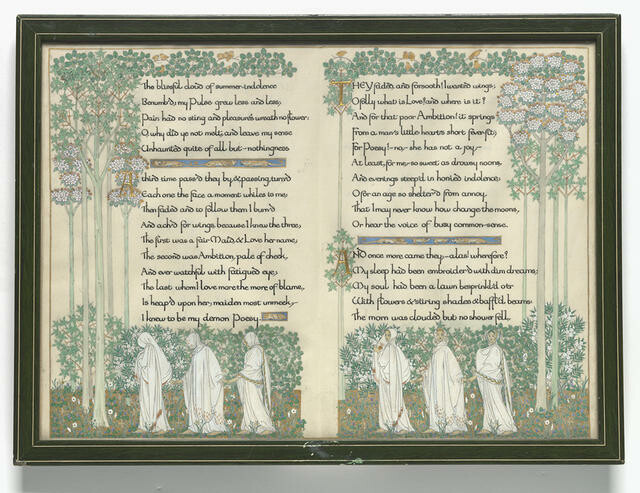 The blissful cloud of summer-indolence
Benumb'd my Pulse grew less and less;
Pain had no sting and pleasure's wreath no flower:
O, why did ye not melt and leave my sense
Unhaunted quite of all but - nothingness.
A third time pass'd they by, & passing, turn'd
Each one the face a moment whiles to me;
Then faded and to follow them I burn'd
And ach'd for wings, because I knew the three,
The first was a fair Maid, & Love her name,
The second was Ambition, pale of cheek,
And ever watchful with fatigued eye;
The last whom I love more, the more of blame,
Is heap'd upon her, maiden most unmeek,-
I knew to be my demon Poesy.
THEY faded, and forsooth! I wanted wings;
O folly! what is Love? and where is it?
And for that poor Ambition! it springs
From a man's little heart's short fever-fit;
For Poesy!- no,- she has not a joy,-
At least, for me,- so sweet as drowsy noons,
And evenings steep'd in honied indolence;
O for an age so shelter'd from annoy.
That I may never know how change the moons,
Or hear the voice of busy common-sense.
AND once more came they;- alas! wherefore?
My sleep had been embroider'd with dim dreams;
My soul had been a lawn besprinkl'd o'er
With flowers & stirring shades & baffl'd beams:
The morn was clouded but no shower fell,